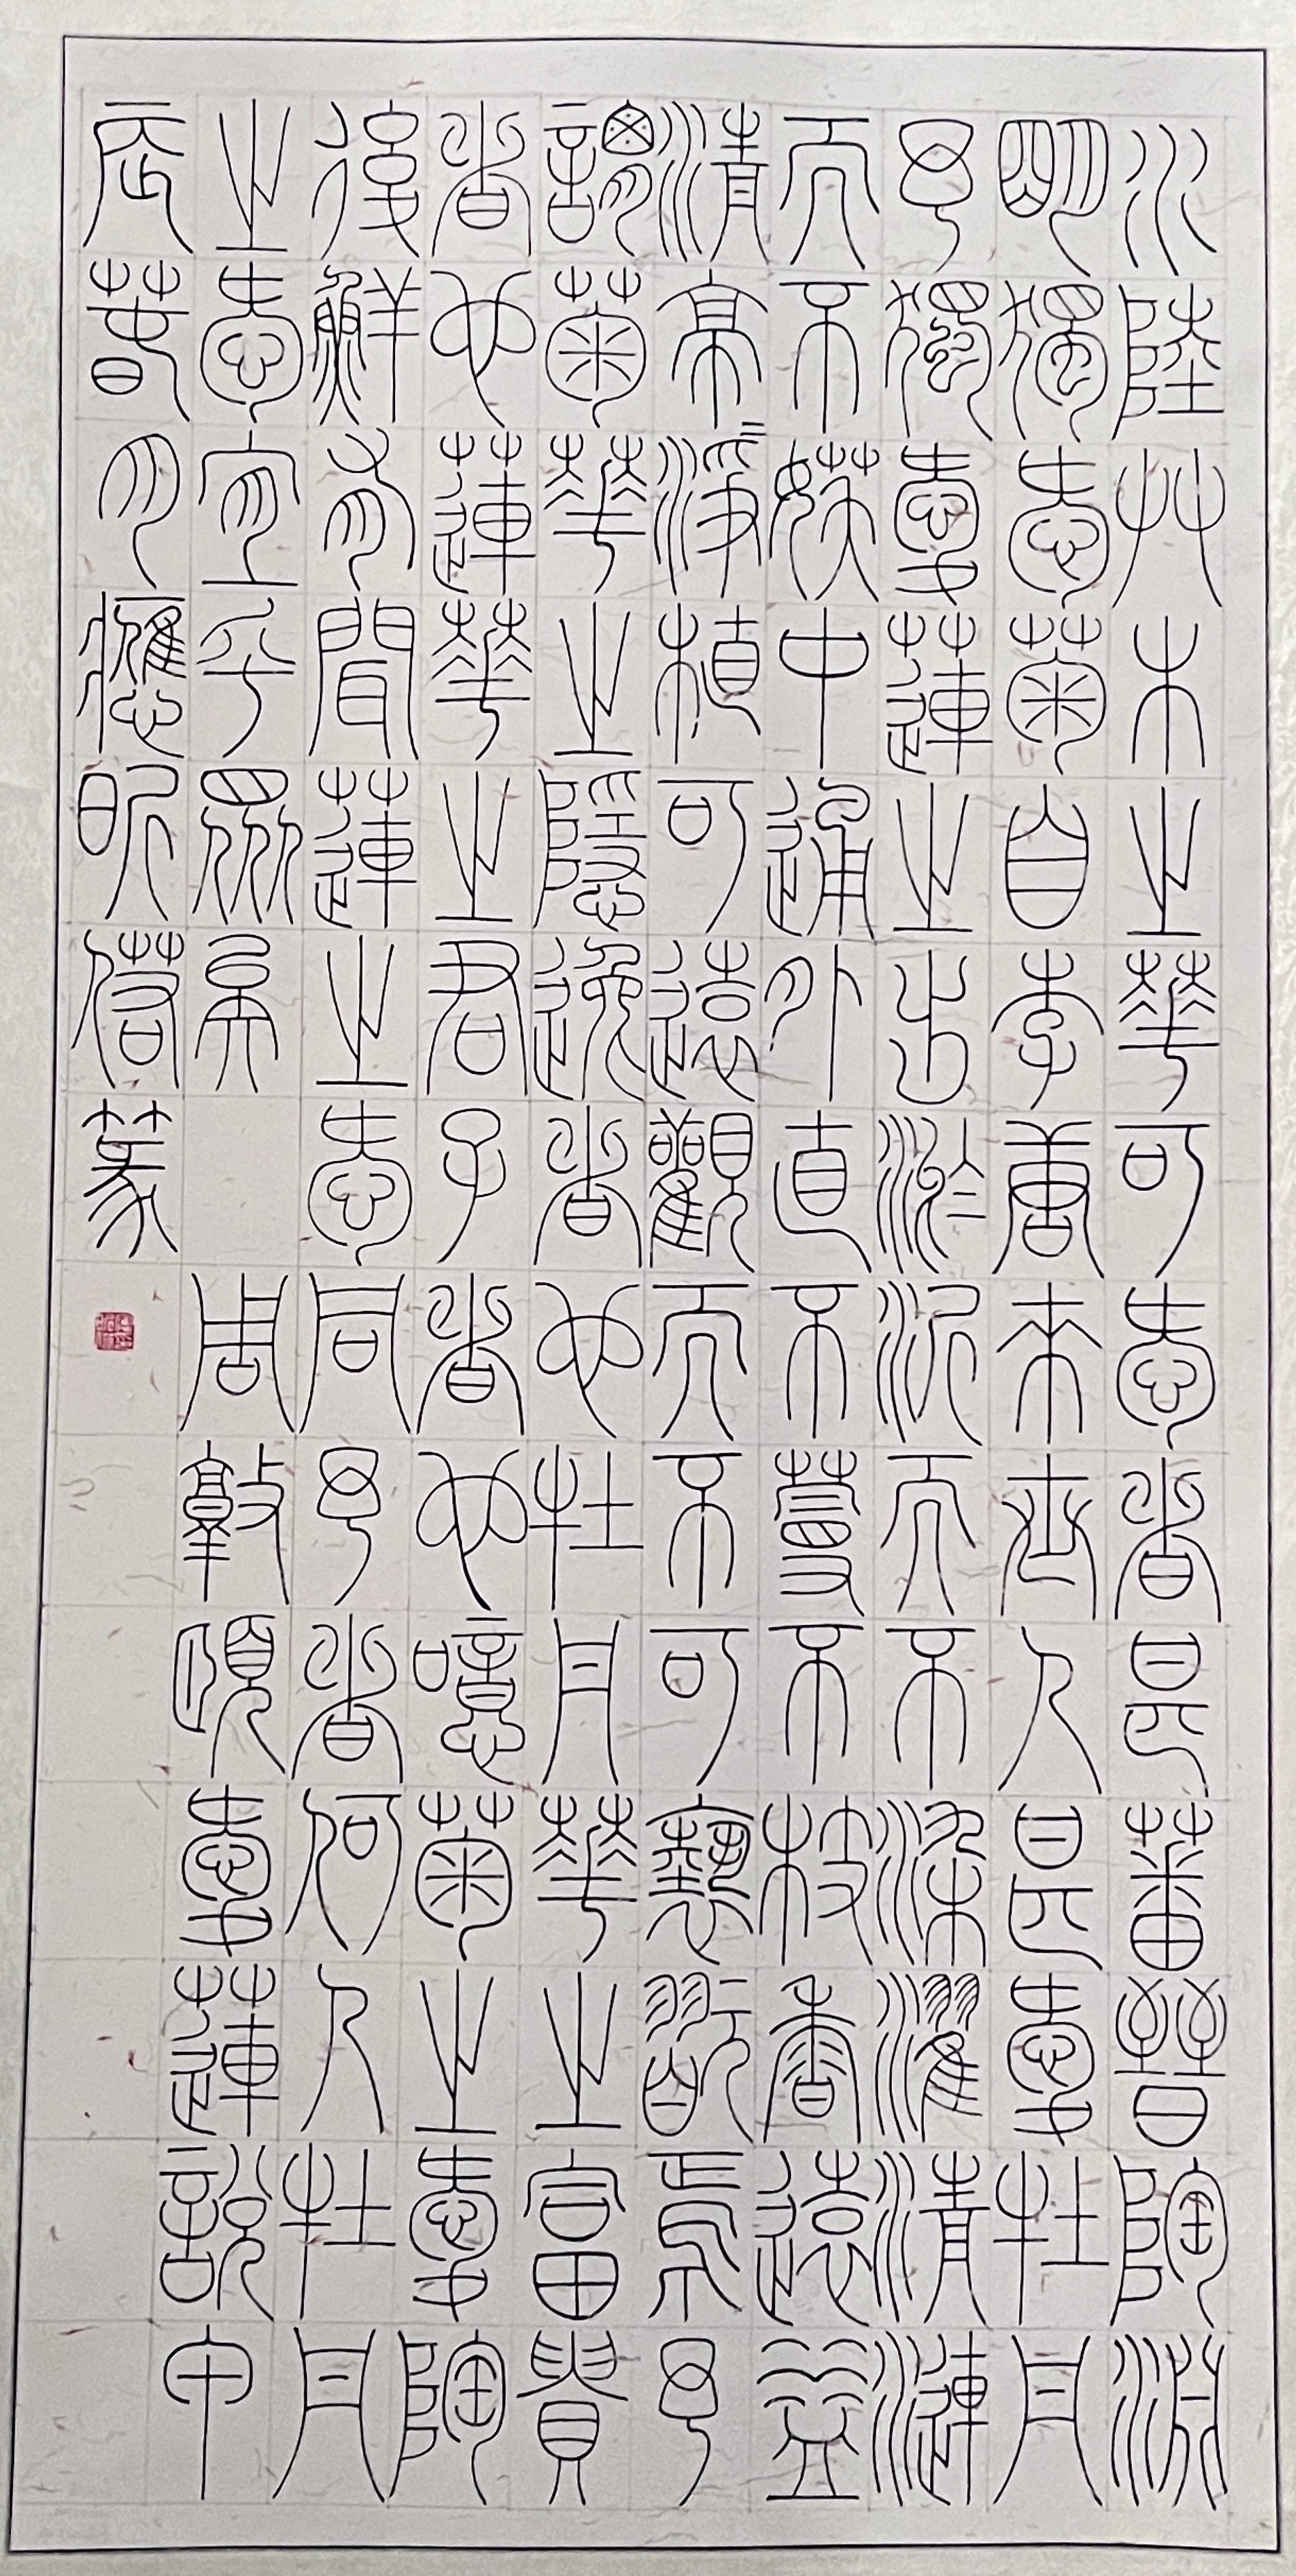 水陸艸木之華可愛者甚蕃晉陶淵
明獨愛菊自李唐來世人甚愛牡丹
予獨愛蓮之出淤泥而不染濯清漣
而不妖中通外直不蔓不枝香遠益
清亭=淨植可遠觀而不可褻翫焉予
謂菊華之隱逸者也牡丹華之富貴
者也蓮華之君子者也噫菊之愛陶
後鮮有聞蓮之愛同予者何人牡丹
之愛宜乎眾矣 周敦頤愛蓮說甲
辰春月應昕偌篆